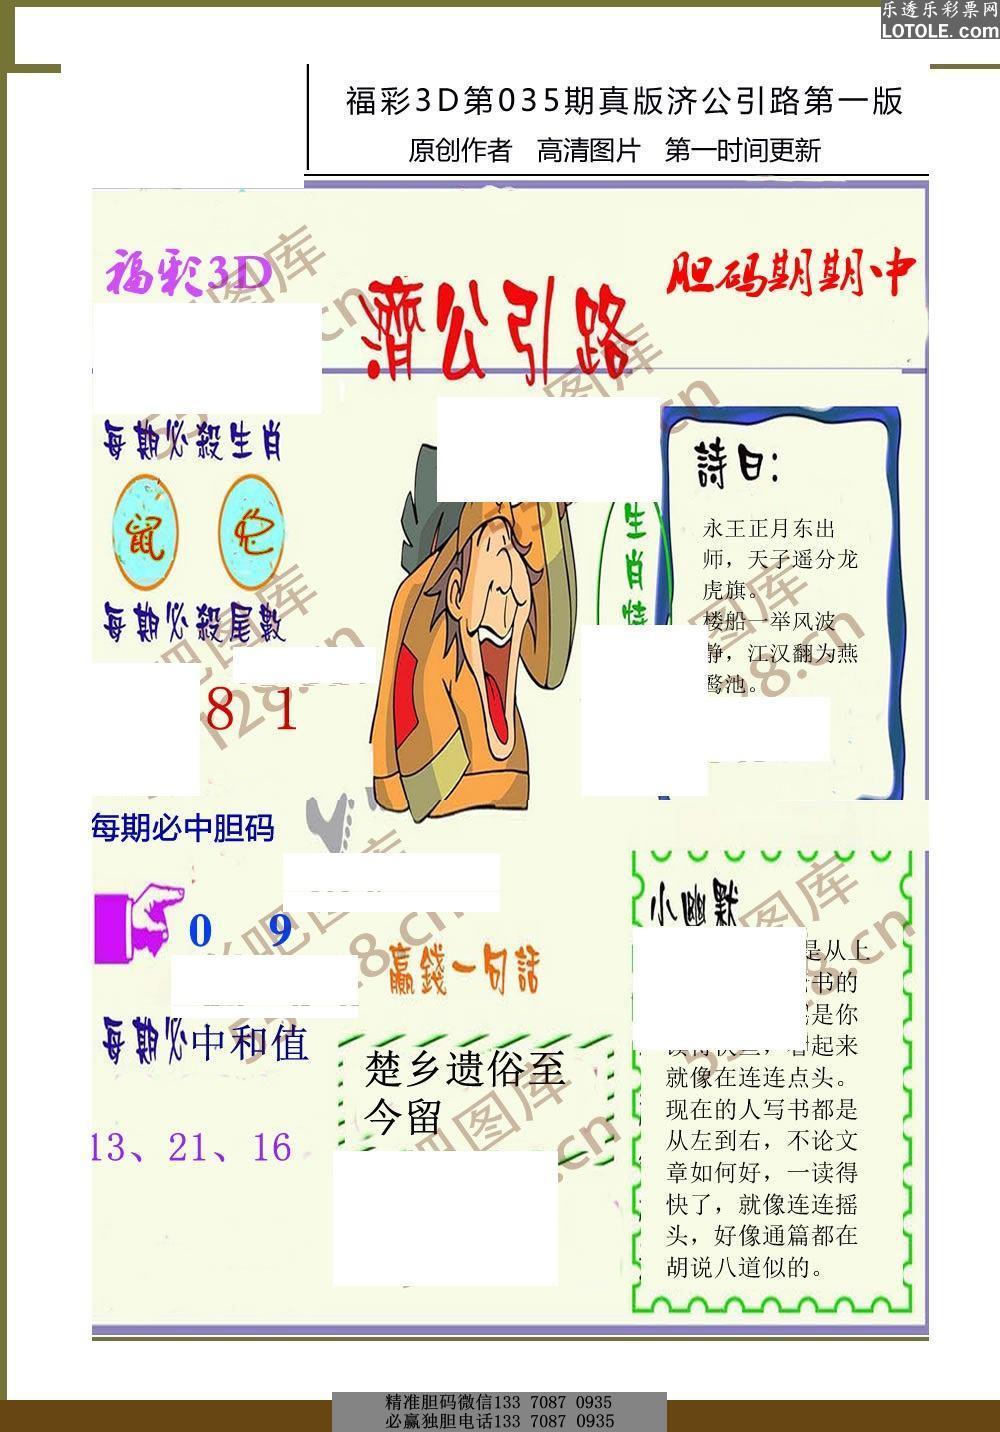 乐透乐彩票网
LOTOLE.com
福彩3D第035期真版济公引路第一版
原创作者 高清图片 第一时间更新
福彩3D
濟公引路
胆码期期中
每期必殺生肖
鼠 蛇
每期必殺尾數
8 1
生肖
詩曰：
永王正月东出
师，天子遥分龙
虎旗。
楼船一举风波
静，江汉翻为燕
鹜池。
每期必中胆码
0 9
每期必中和值
13、21、16
赢錢一句話
楚乡遗俗至
今留
小幽默
是从上
书的
是你
看起来
就像在连连点头。
现在的人写书都是
从左到右，不论文
章如何好，一读得
快了，就像连连摇
头，好像通篇都在
胡说八道似的。
精准胆码微信133 7087 0935
必赢独胆电话133 7087 0935